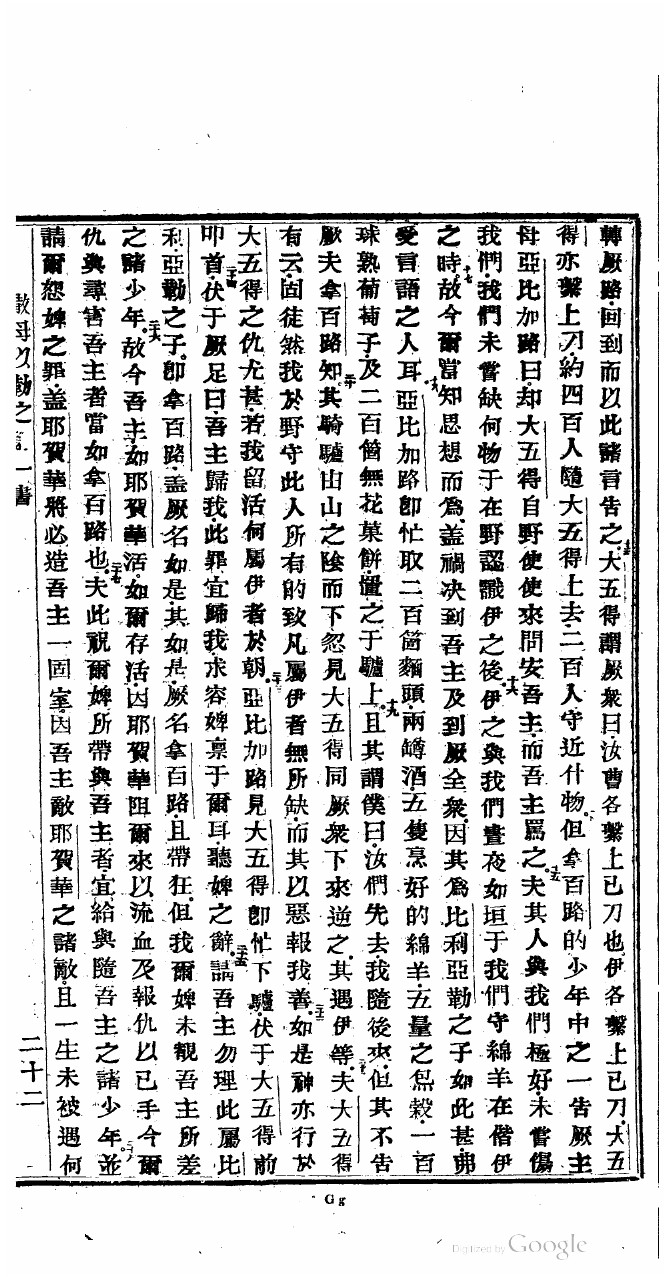 轉厥路回到而以此諸言告之大五得謂厥衆曰汝曹各繫上己刀也伊各繫上己刀大五
十三
得亦繫上刀約四百人隨大五得上去二百人守近什物但拿百路的少年中之一告厥主
母亞比加路曰却大五得自野使使來問安吾主而吾主罵之夫其人與我們極好未嘗傷
十五
我們我們未嘗缺何物于在野認識伊之後伊之與我們晝夜如垣于我們守綿羊在偕伊
十六
之時故今爾當知思想而爲蓋禍决到吾主及到厥全衆因其爲比利亞勒之子如此甚弗
十七
愛言語之人耳亞比加路卽忙取二百箇麵頭兩罇酒五隻烹好的綿羊五量之烝穀一百
十八
球熟葡萄子及二百箇無花菓餅置之于驢上且其謂僕曰汝們先去我隨後來但其不告
十九
厥夫拿百路知其騎驢由山之陰而下忽見大五得同厥衆下來逆之其遇伊等夫大五得
二十
有云固徒然我於野守此人所有的致凡屬伊者無所缺而其以惡報我善如是神亦行於
大五得之仇尤甚若我留活何屬伊者於朝亞比加路見大五得卽忙下驢伏于大五得前
叩首伏于厥足曰吾主歸我此罪宜歸我求容婢禀于爾耳聽婢之辭請吾主勿理此屬比
二十四
二十五
利亞勒之子卽拿百路蓋厥名如是其如是厥名拿百路且帶狂但我爾婢未覩吾主所差
之諸少年故今吾主如耶賀華活如爾存活因耶賀華阻爾來以流血及報仇以己手今爾
二十六
仇與尋害吾主者當如拿百路也夫此祝爾婢所帶與吾主者宜給與隨吾主之諸少年並
二十七
請爾恕婢之罪蓋耶賀華將必造吾主一固室因吾主敵耶賀華之諸敵且一生未被遇何
二十八
母以勒之言一書
二十二
Gg
Digitized by Google